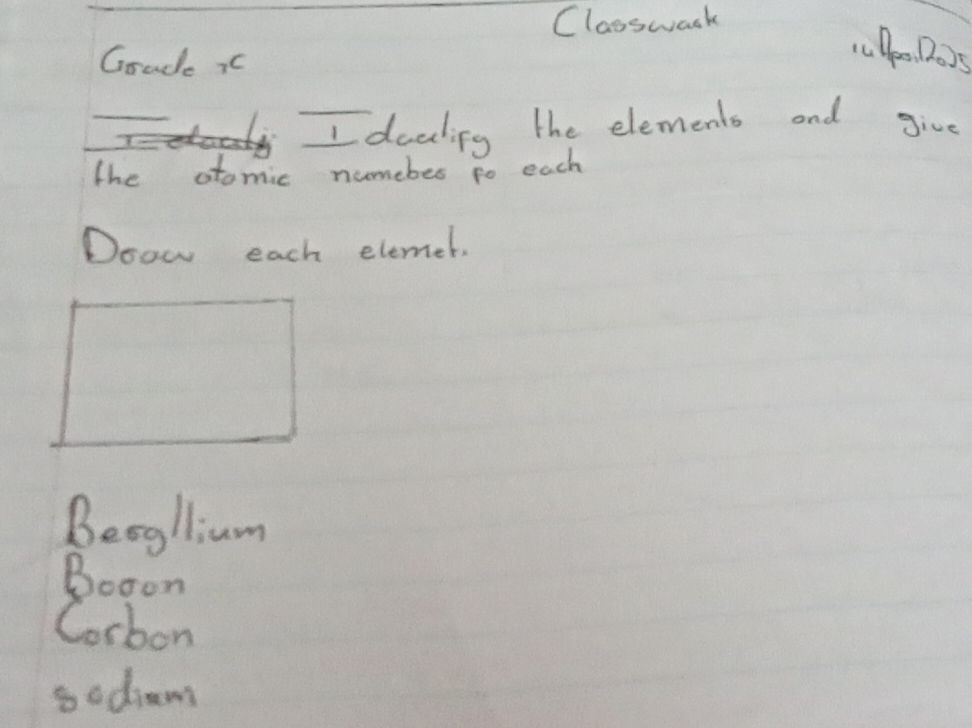 Classwork
Grade 7C
Identify the elements and give
the atomic numebes fo each
Draw each elemet.
Beryllium
Boron
Carbon
sodium